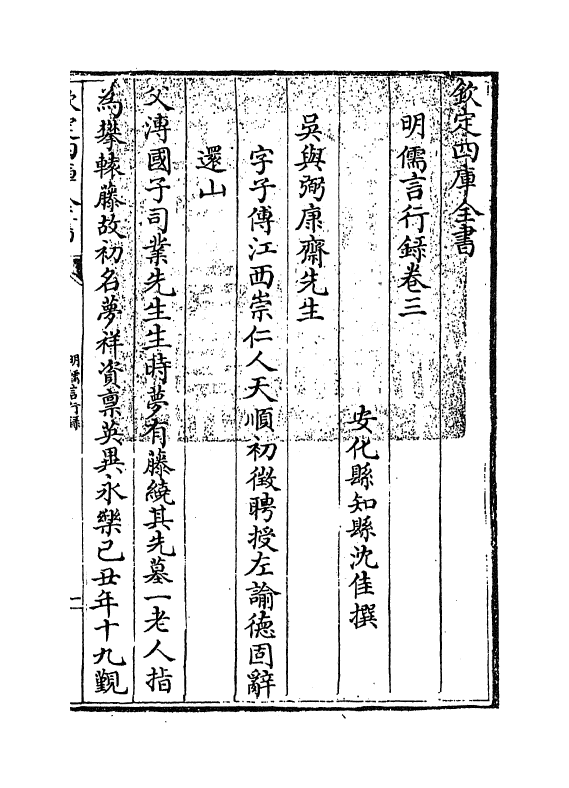 欽定四庫全書
明儒言行録卷三
安化縣知縣沈佳撰
吳與弼康齋先生
字子傳江西崇仁人天順初徵聘授左諭德固辭
還山
父溥國子司業先生生時夢有藤繞其先墓一老人指
為攀轅藤故初名夢祥資禀英異永樂己丑年十九覲
欽定四庫全書
明儒言行録
一